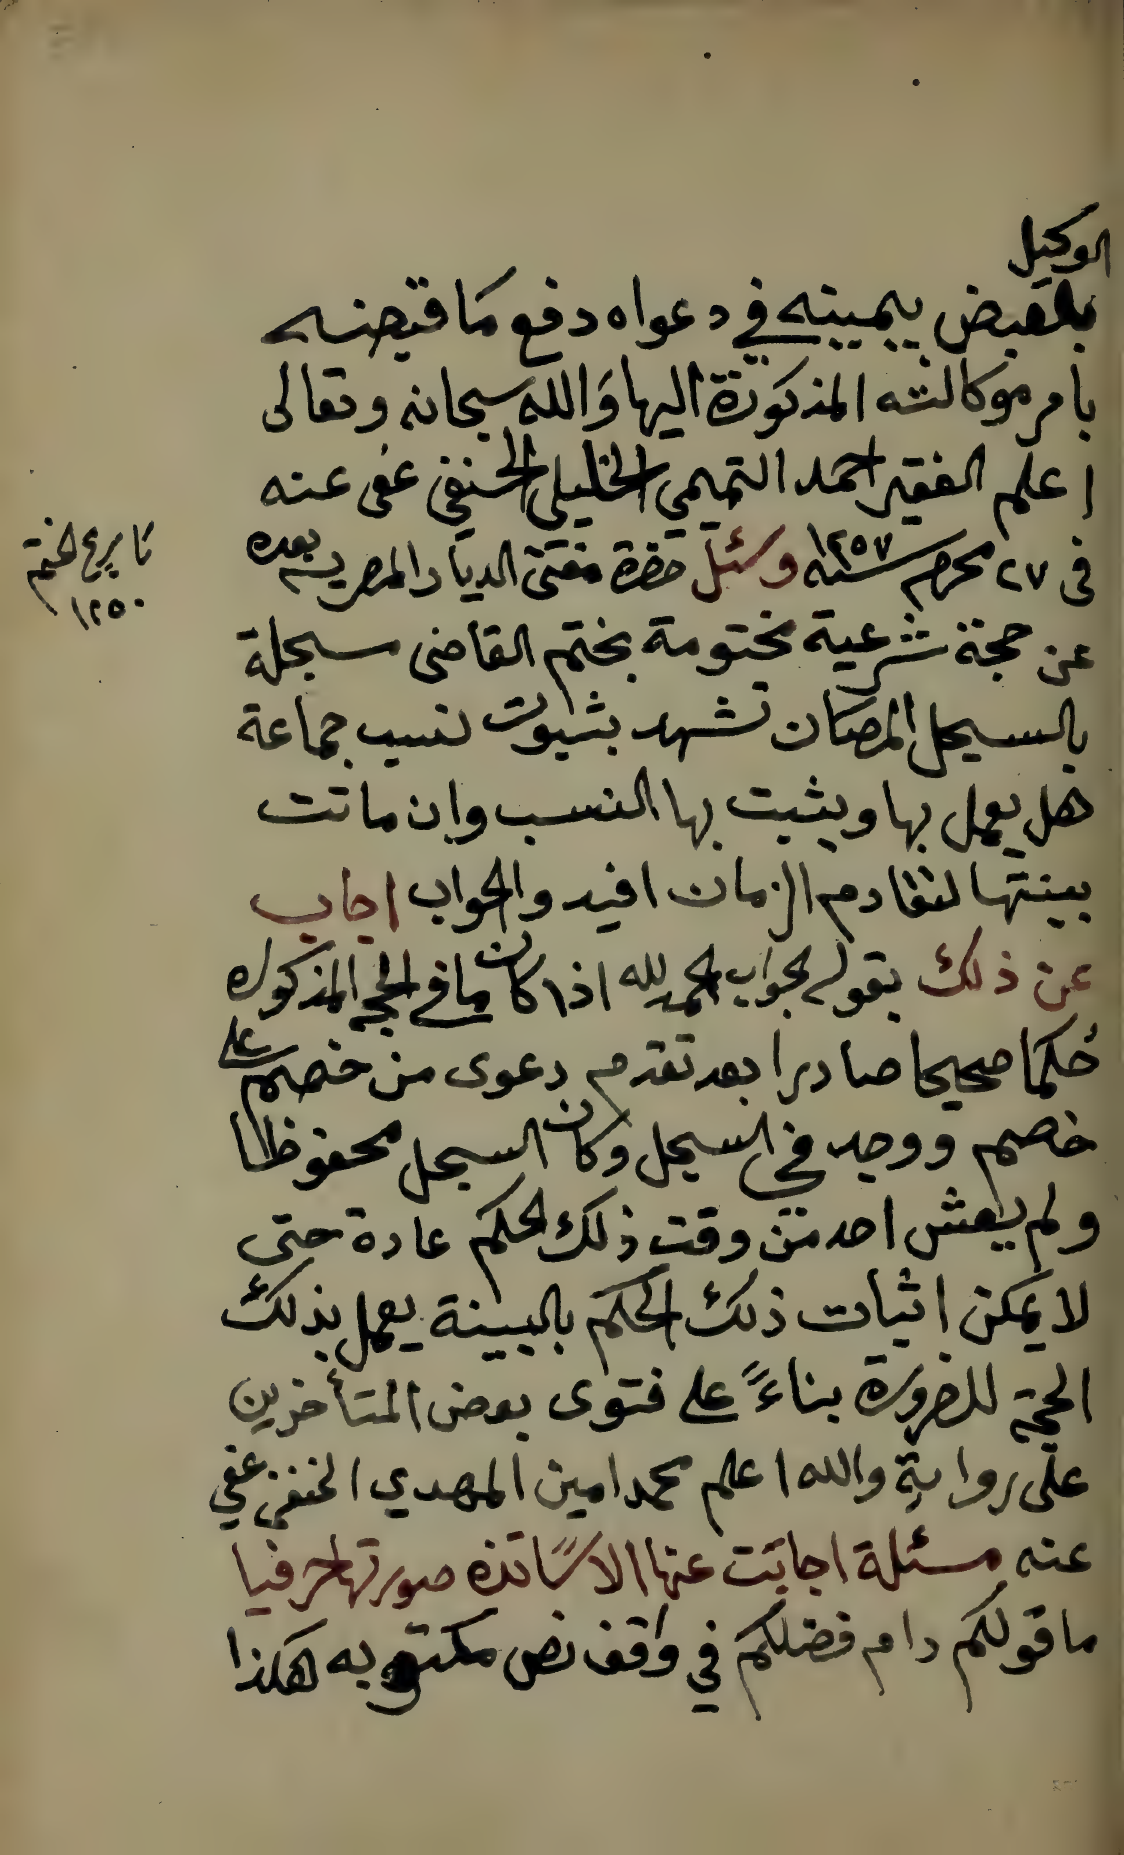 الوكيل
بالقبض بيمينه في دعواه دفع ما قبضه
بامر موكالته المذكورة اليها والله سبحانه وتعالى
اعلم الفقير احمد التميمي الخليلي الحنفي عفى عنه
في ٢٧ محرم سنة ١٢٥٧ وسئل حضرة مفتى الديار المصريه بعده
تاريخ الختم
١٢٥٠
عن حجة شرعية مختومة بختم القاضى مسجلة
بالسجل المصان تشهد بثبوت نسب جماعة
هل يعمل بها ويثبت بها النسب وان ماتت
بينتها لتقادم الزمان افيد والجواب اجاب
عن ذلك بقوله بجواب الحمد لله اذا كان ما في الحجه المذكوره
حُكمًا صحيحا صادرا بعد تقدم دعوى من خصم على
خصم ووجد في السجل وكان السجل محفوظا
ولم يعش احد من وقت ذلك الحكم عادة حتى
لا يمكن اثبات ذلك الحكم بالبينة يعمل بذلك
الحجة للضرورة بناءً على فتوى بعض المتأخرين
على رواية والله اعلم محمد امين المهدي الحنفى عفي
عنه مسئلة اجابت عنها الاساتذه صورتها حرفيا
ما قولكم دام فضلكم في واقف نص مكتوبه هكذا